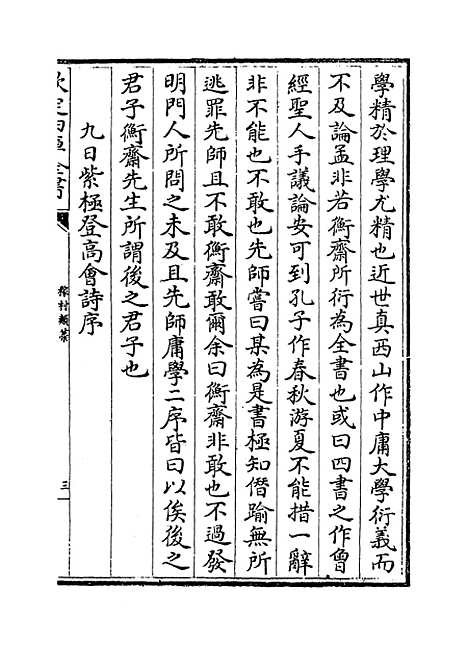 學精於理學尤精也近世真西山作中庸大學衍義而
不及論孟非若衡齋所衍為全書也或曰四書之作曾
經聖人手議論安可到孔子作春秋游夏不能措一辭
非不能也不敢也先師嘗曰某為是書極知僭踰無所
逃罪先師且不敢衡齋敢爾余曰衡齋非敢也不過發
明門人所問之未及且先師庸學二序皆曰以俟後之
君子衡齋先生所謂後之君子也
九日紫極登高會詩序
欽定四庫全書
稼村類藁
三